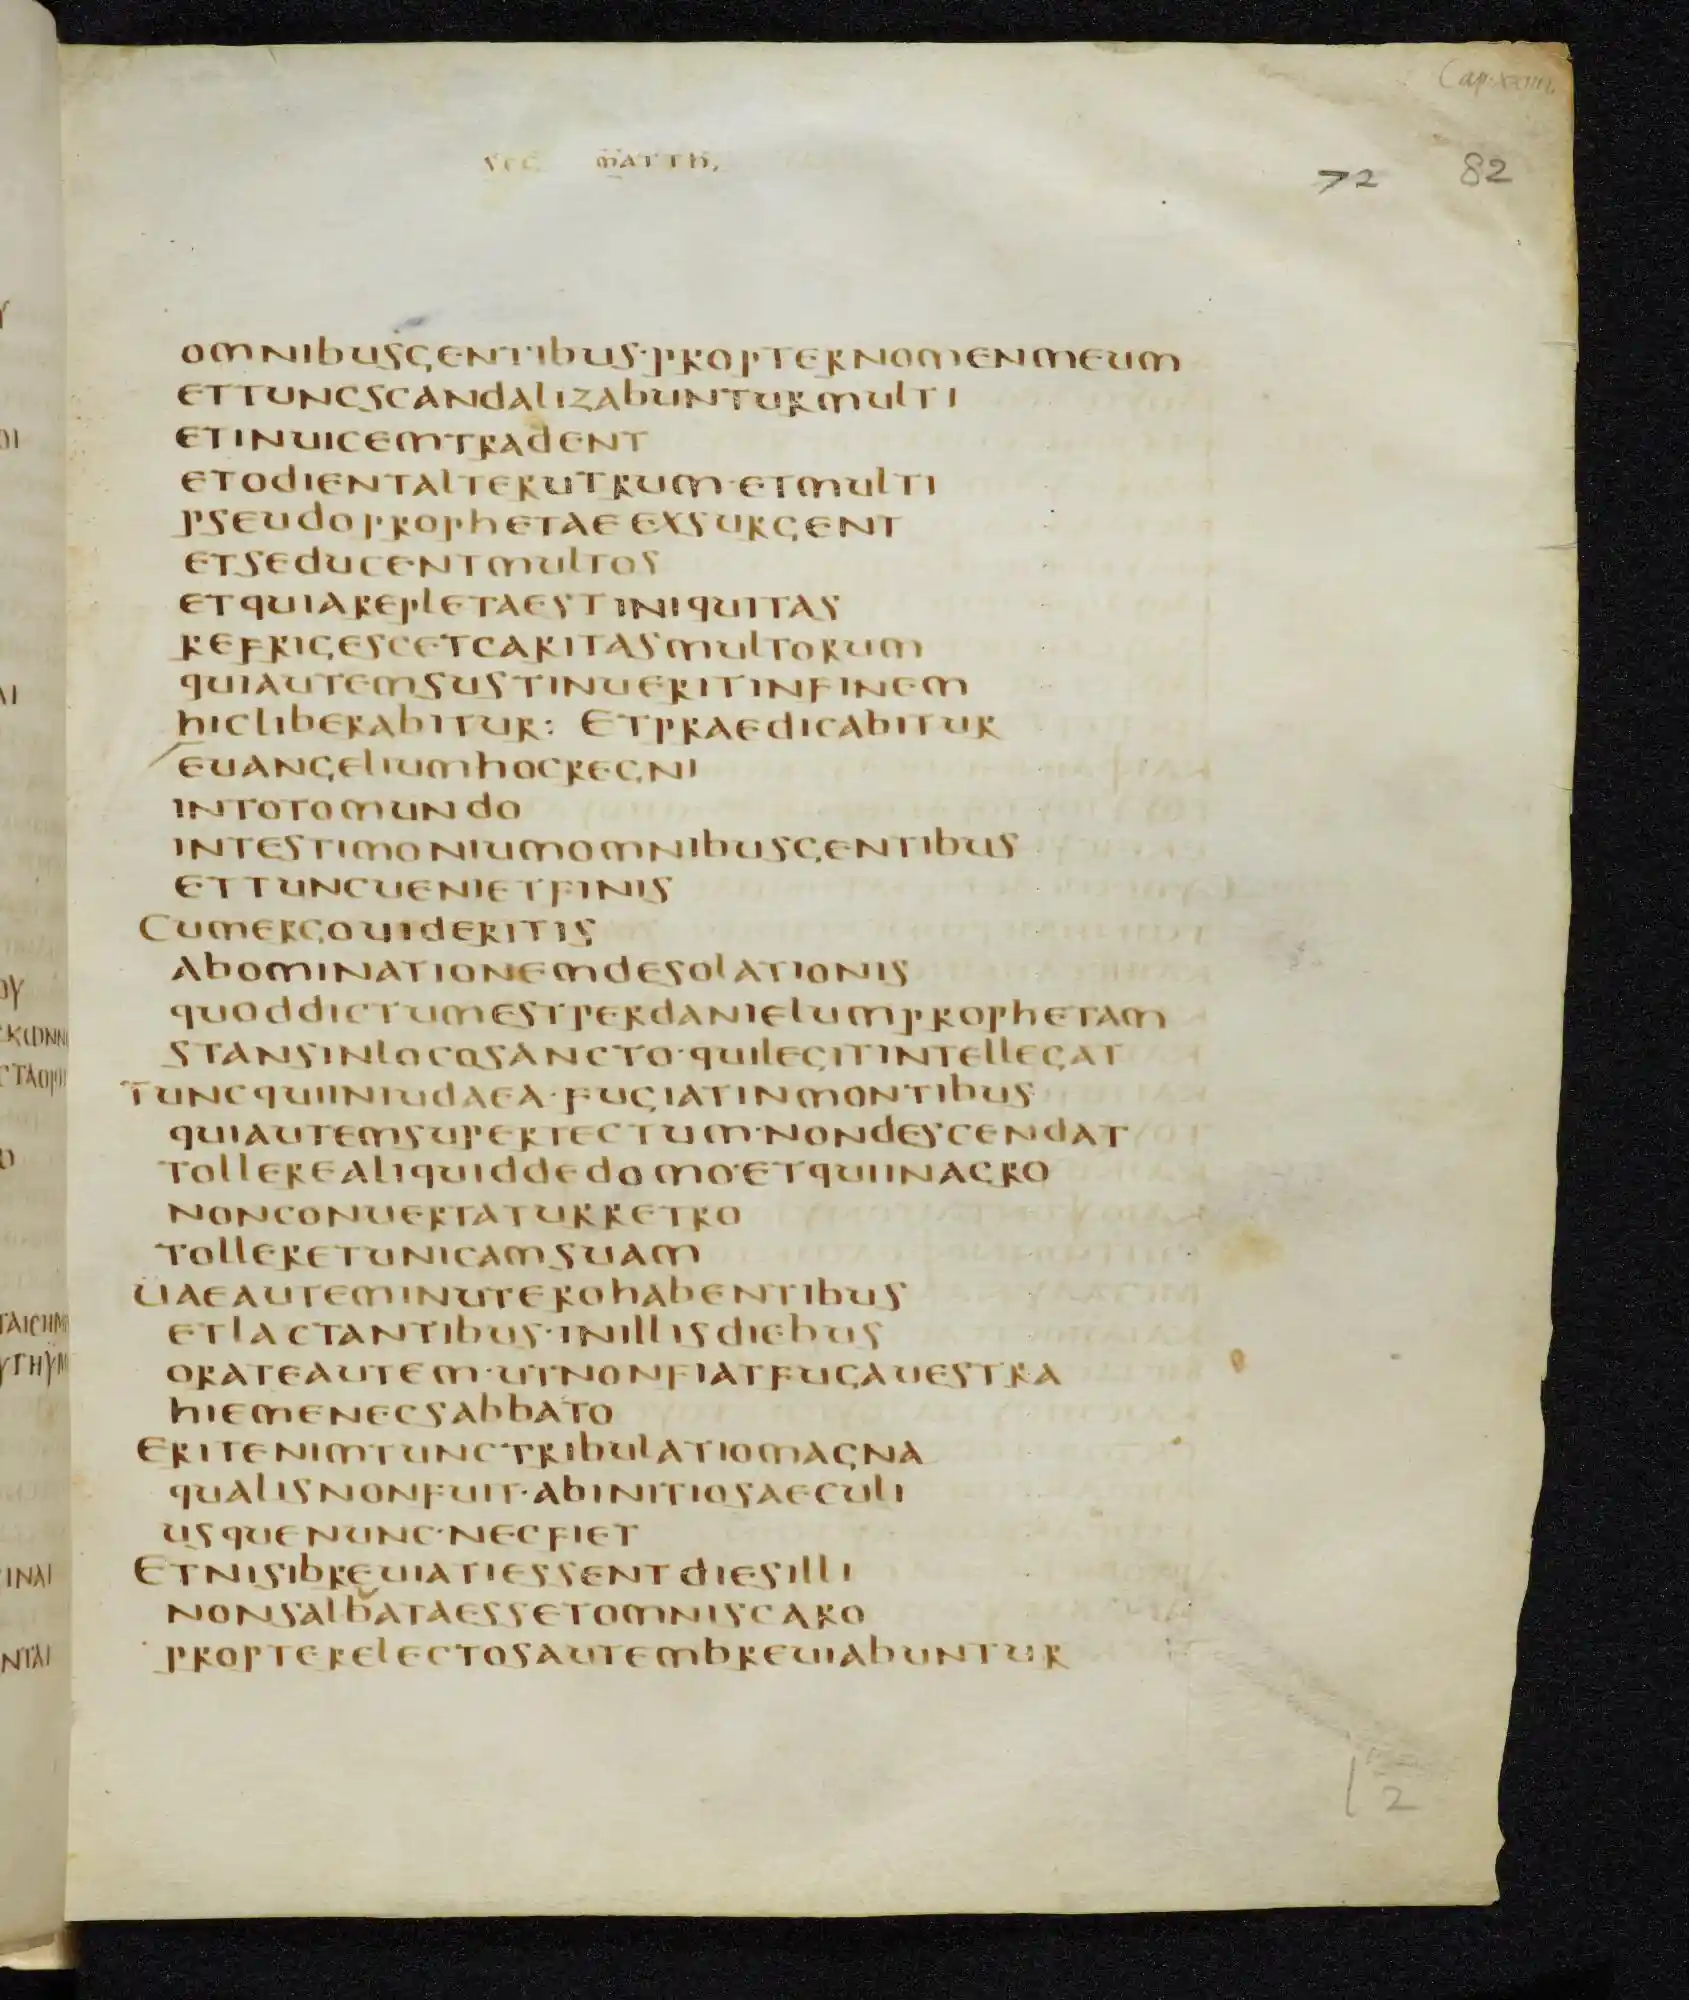 Cap. XXIIII.
SEC MATTH,
72 82
OMNIBUSGENTIBUS·PROPTERNOMENMEUM
ETTUNCSCANDALIZABUNTURMULTI
ETINUICEMTRADENT
ETODIENTALTERUTRUM·ETMULTI
PSEUDOPROPHETAEEXSURGENT
ETSEDUCENTMULTOS
ETQUIAREPLETAESTINIQUITAS
REFRIGESCETCARITASMULTORUM
QUIAUTEMSUSTINUERITINFINEM
HICLIBERABITUR: ETPRAEDICABITUR
EUANGELIUMHOCREGNI
INTOTOMUNDO
INTESTIMONIUMOMNIBUSGENTIBUS
ETTUNCUENIETFINIS
CUMERGOUIDERITIS
ABOMINATIONEMDESOLATIONIS
QUODDICTUMESTPERDANIELUMPROPHETAM
STANSINLOCOSANCTO·QUILEGITINTELLEGAT
TUNCQUIINIUDAEA·FUGIATINMONTIBUS
QUIAUTEMSUPERTECTUM·NONDESCENDAT
TOLLEREALIQUIDDEDOMO·ETQUIINAGRO
NONCONUERTATURRETRO
TOLLERETUNICAMSUAM
UAEAUTEMINUTEROHABENTIBUS
ETLACTANTIBUS·INILLISDIEBUS
ORATEAUTEM·UTNONFIATFUGAUESTRA
HIEMENECSABBATO
ERITENIMTUNCTRIBULATIOMAGNA
QUALISNONFUIT·ABINITIOSAECULI
USQUENUNC·NECFIET
ETNISIBREUIATIESSENTDIESILLI
NONSALBATAESSETOMNISCARO
PROPTERELECTOSAUTEMBREUIABUNTUR
12